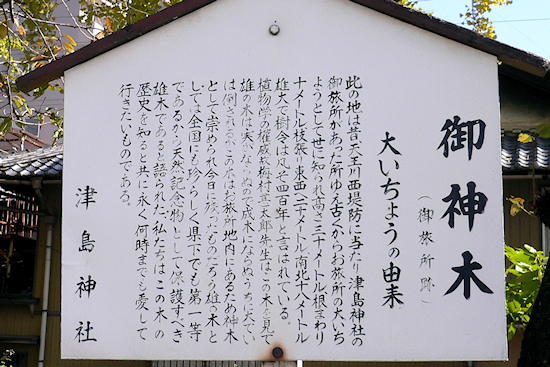 御神木
(御旅所跡)
大いちょうの由来
此の地は昔天王川西堤防に当たり津島神社の
御旅所があった所ゆえ古くからお旅所の大いち
ようとして世に知られ高さ三十メートル根まわり
十メートル枝張り東西二十メートル南北十八メートル
雄大で樹令は凡そ四百年と言はれている。
植物学の権威故梅村甚太郎先生はこの木を見て
雄の木は実がならぬので成木にならぬうちに大てい
は倒されるがこの木はお旅所地内にあるため神木
として崇められ今日に残ったものだろう雄の木と
しては全国にも珍らしく県下でも第一等
であるから天然記念物として保護すべき
雄木であると語られた。私たちはこの木の
歴史を知ると共に永く何時までも愛して
行きたいものである。
津島神社